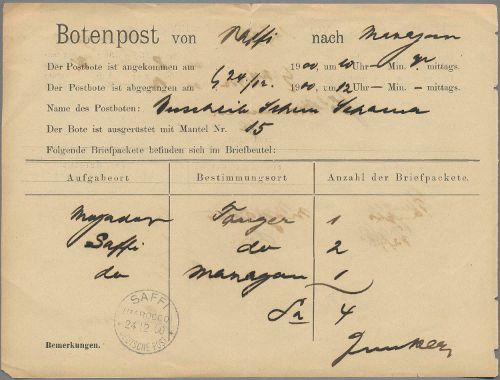 Botenpost von Saffi nach Mazagan
Der Postbote ist angekommen am 1900, um 10 Uhr — Min. gr. mittags.
Der Postbote ist abgegangen am 24/12 1900, um 12 Uhr — Min. — mittags.
Name des Postboten:
Der Bote ist ausgerüstet mit Mantel Nr. 15
Folgende Briefpackete befinden sich im Briefbeutel:
Aufgabeort Bestimmungsort Anzahl der Briefpackete.
Mogador Tanger 1
Saffi do 2
do Mazagan 1
Sa 4
SAFFI
(MAROCCO)
24.12.00
DEUTSCHE POST
Junker
Bemerkungen.